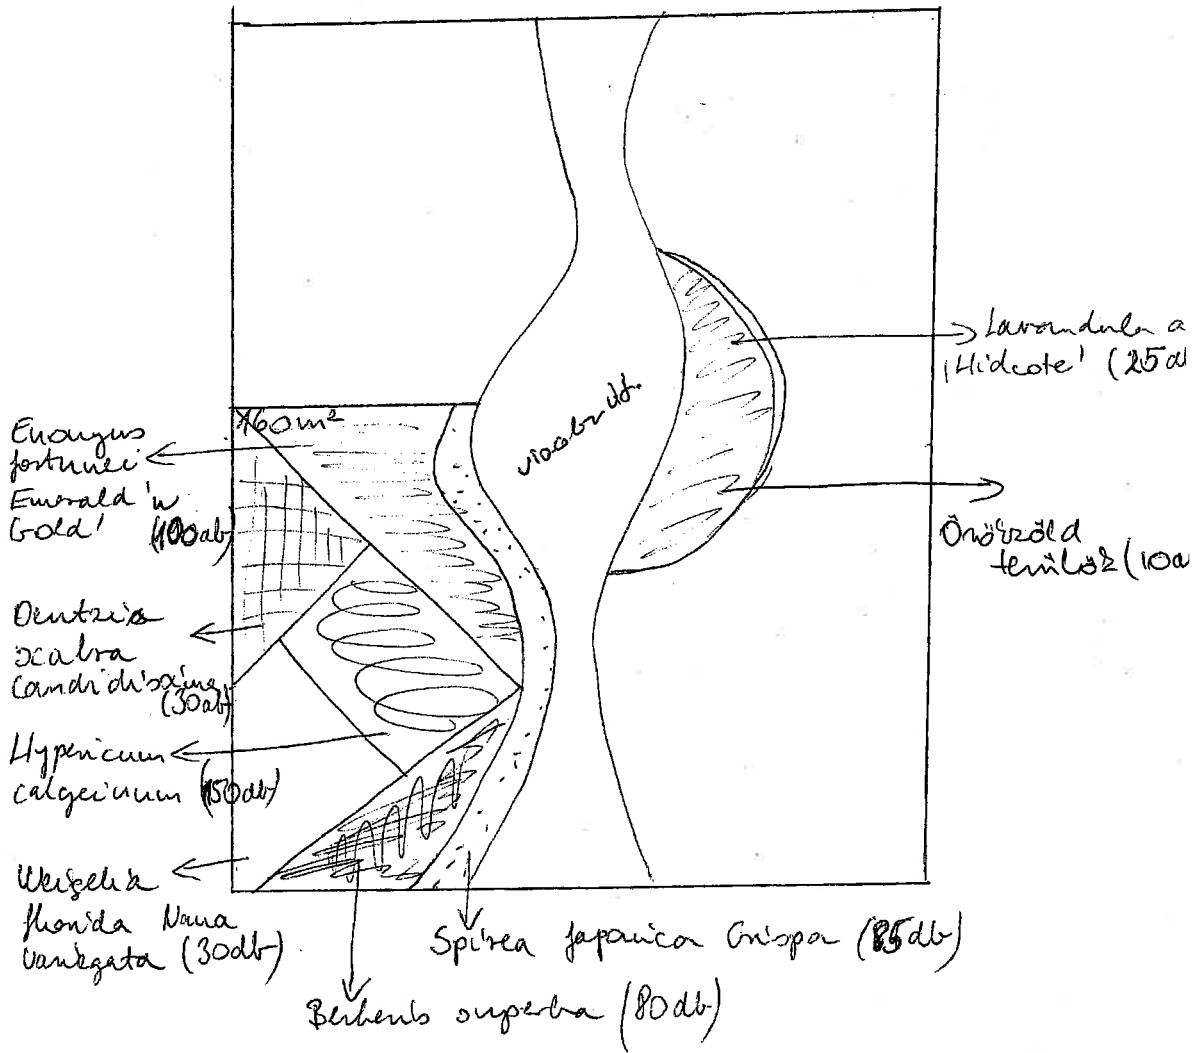 Lavandula a
'Hidcote' (25d
160m²
viacolor út.
Euonyus
fortunei
Emerald 'n
Gold'
(100db)
Örökzöld
(10d
Deutzia
scabra
Candidissima
(30db)
Hypericum
calycinum (150db)
Weigelia
florida Nana
variegata (30db)
Spirea japonica Crispa (85db)
Berberis superba (80db)